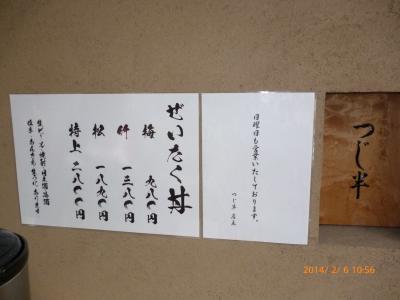 ぜいたく丼
梅 九八〇円
竹 一三八〇円
松 一八九〇円
特上 二八〇〇円
日曜日も営業いたしております。
つじ半 店主
つじ半
2014/ 2/ 6 10:56